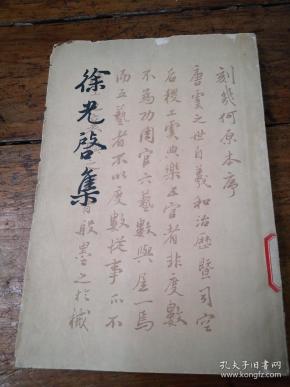 刻幾何原本序
唐虞之世自羲和治歷暨司空
后稷工虞典樂五官者非度數
不為功周官六藝數與居一焉
而五藝者不以度數從事亦不
徐光啓集
般墨之於械
孔夫子旧书网